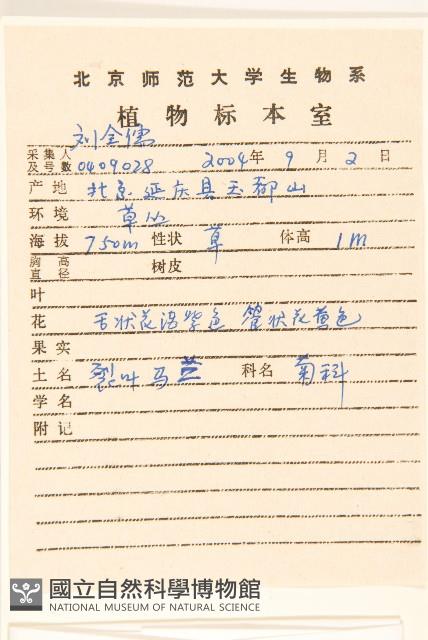 北京师范大学生物系
植物标本室
刘全儒
采集人及号数 0409028 2004年 9月 2日
产地 北京延庆县玉都山
环境 草丛
海拔 750m 性状 草 体高 1m
胸高直径 树皮
叶
花 舌状花浅紫色 管状花黄色
果实
土名 裂叶马兰 科名 菊科
学名
附记
國立自然科學博物館
NATIONAL MUSEUM OF NATURAL SCIENCE